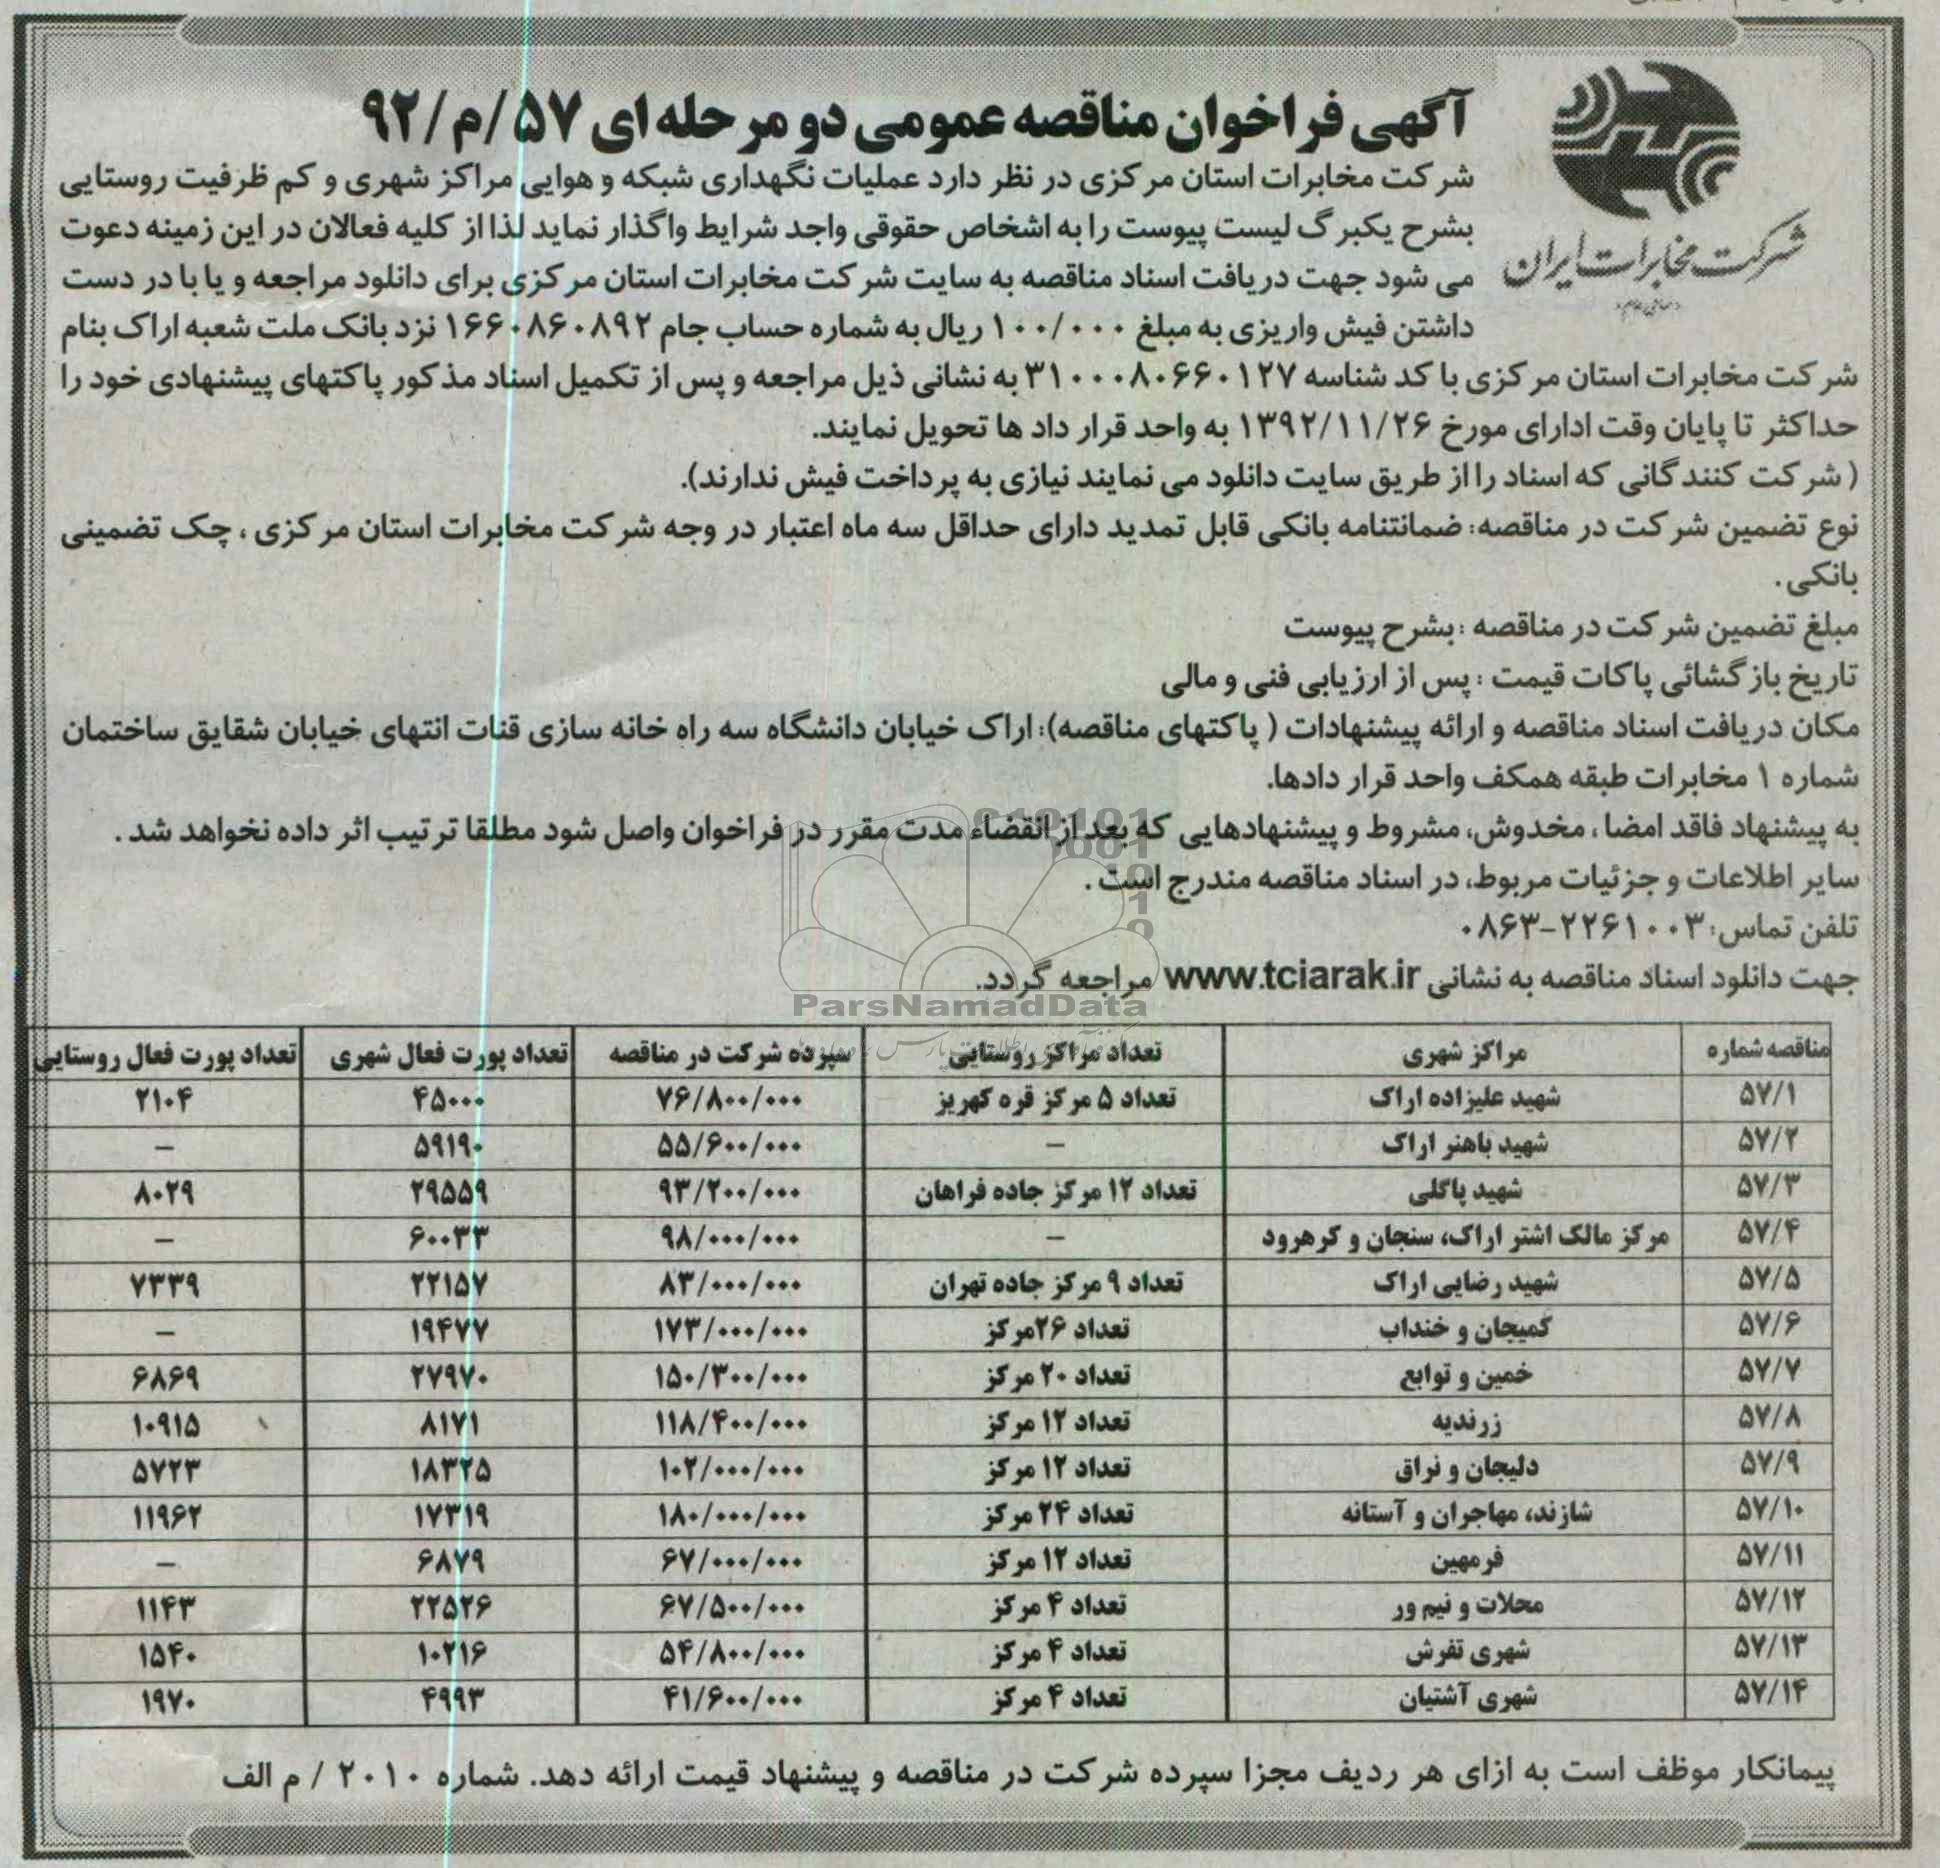 آگهی فراخوان مناقصه عمومی دو مرحله ای ۵۷/م/۹۲
شرکت مخابرات ایران
شرکت مخابرات استان مرکزی در نظر دارد عملیات نگهداری شبکه و هوایی مراکز شهری و کم ظرفیت روستایی
بشرح یکبرگ لیست پیوست را به اشخاص حقوقی واجد شرایط واگذار نماید لذا از کلیه فعالان در این زمینه دعوت
می شود جهت دریافت اسناد مناقصه به سایت شرکت مخابرات استان مرکزی برای دانلود مراجعه و یا با در دست
داشتن فیش واریزی به مبلغ ۱۰۰/۰۰۰ ریال به شماره حساب جام ۱۶۶۰۸۶۰۸۹۲ نزد بانک ملت شعبه اراک بنام
شرکت مخابرات استان مرکزی با کد شناسه ۳۱۰۰۰۸۰۶۶۰۱۲۷ به نشانی ذیل مراجعه و پس از تکمیل اسناد مذکور پاکتهای پیشنهادی خود را
حداکثر تا پایان وقت ادارای مورخ ۱۳۹۲/۱۱/۲۶ به واحد قرار داد ها تحویل نمایند.
(شرکت کنندگانی که اسناد را از طریق سایت دانلود می نمایند نیازی به پرداخت فیش ندارند).
نوع تضمین شرکت در مناقصه: ضمانتنامه بانکی قابل تمدید دارای حداقل سه ماه اعتبار در وجه شرکت مخابرات استان مرکزی ، چک تضمینی
بانکی .
مبلغ تضمین شرکت در مناقصه : بشرح پیوست
تاریخ بازگشائی پاکات قیمت : پس از ارزیابی فنی و مالی
مکان دریافت اسناد مناقصه و ارائه پیشنهادات ( پاکتهای مناقصه): اراک خیابان دانشگاه سه راه خانه سازی قنات انتهای خیابان شقایق ساختمان
شماره ۱ مخابرات طبقه همکف واحد قرار دادها.
به پیشنهاد فاقد امضا ، مخدوش، مشروط و پیشنهادهایی که بعد از انقضاء مدت مقرر در فراخوان واصل شود مطلقا ترتیب اثر داده نخواهد شد .
سایر اطلاعات و جزئیات مربوط، در اسناد مناقصه مندرج است .
تلفن تماس: ۲۲۶۱۰۰۳-۰۸۶۳
جهت دانلود اسناد مناقصه به نشانی www.tciarak.ir مراجعه گردد.
ParsNamadData
مناقصه شماره | مراکز شهری | تعداد مراکز روستایی | سپرده شرکت در مناقصه | تعداد پورت فعال شهری | تعداد پورت فعال روستایی
۵۷/۱ | شهید علیزاده اراک | تعداد ۵ مرکز قره کهریز | ۷۶/۸۰۰/۰۰۰ | ۴۵۰۰۰ | ۲۱۰۴
۵۷/۲ | شهید باهنر اراک | – | ۵۵/۶۰۰/۰۰۰ | ۵۹۱۹۰ | –
۵۷/۳ | شهید پاکلی | تعداد ۱۲ مرکز جاده فراهان | ۹۳/۲۰۰/۰۰۰ | ۲۹۵۵۹ | ۸۰۲۹
۵۷/۴ | مرکز مالک اشتر اراک، سنجان و کرهرود | – | ۹۸/۰۰۰/۰۰۰ | ۶۰۰۳۳ | –
۵۷/۵ | شهید رضایی اراک | تعداد ۹ مرکز جاده تهران | ۸۳/۰۰۰/۰۰۰ | ۲۲۱۵۷ | ۷۳۳۹
۵۷/۶ | کمیجان و خنداب | تعداد ۲۶مرکز | ۱۷۳/۰۰۰/۰۰۰ | ۱۹۴۷۷ | –
۵۷/۷ | خمین و توابع | تعداد ۲۰ مرکز | ۱۵۰/۳۰۰/۰۰۰ | ۲۷۹۷۰ | ۶۸۶۹
۵۷/۸ | زرندیه | تعداد ۱۲ مرکز | ۱۱۸/۴۰۰/۰۰۰ | ۸۱۷۱ | ۱۰۹۱۵
۵۷/۹ | دلیجان و نراق | تعداد ۱۲ مرکز | ۱۰۲/۰۰۰/۰۰۰ | ۱۸۳۲۵ | ۵۷۲۳
۵۷/۱۰ | شازند، مهاجران و آستانه | تعداد ۲۴ مرکز | ۱۸۰/۰۰۰/۰۰۰ | ۱۷۳۱۹ | ۱۱۹۶۲
۵۷/۱۱ | فرمهین | تعداد ۱۲ مرکز | ۶۷/۰۰۰/۰۰۰ | ۶۸۷۹ | –
۵۷/۱۲ | محلات و نیم ور | تعداد ۴ مرکز | ۶۷/۵۰۰/۰۰۰ | ۲۲۵۲۶ | ۱۱۴۳
۵۷/۱۳ | شهری تفرش | تعداد ۴ مرکز | ۵۴/۸۰۰/۰۰۰ | ۱۰۲۱۶ | ۱۵۴۰
۵۷/۱۴ | شهری آشتیان | تعداد ۴ مرکز | ۴۱/۶۰۰/۰۰۰ | ۴۹۹۳ | ۱۹۷۰
پیمانکار موظف است به ازای هر ردیف مجزا سپرده شرکت در مناقصه و پیشنهاد قیمت ارائه دهد. شماره ۲۰۱۰ / م الف